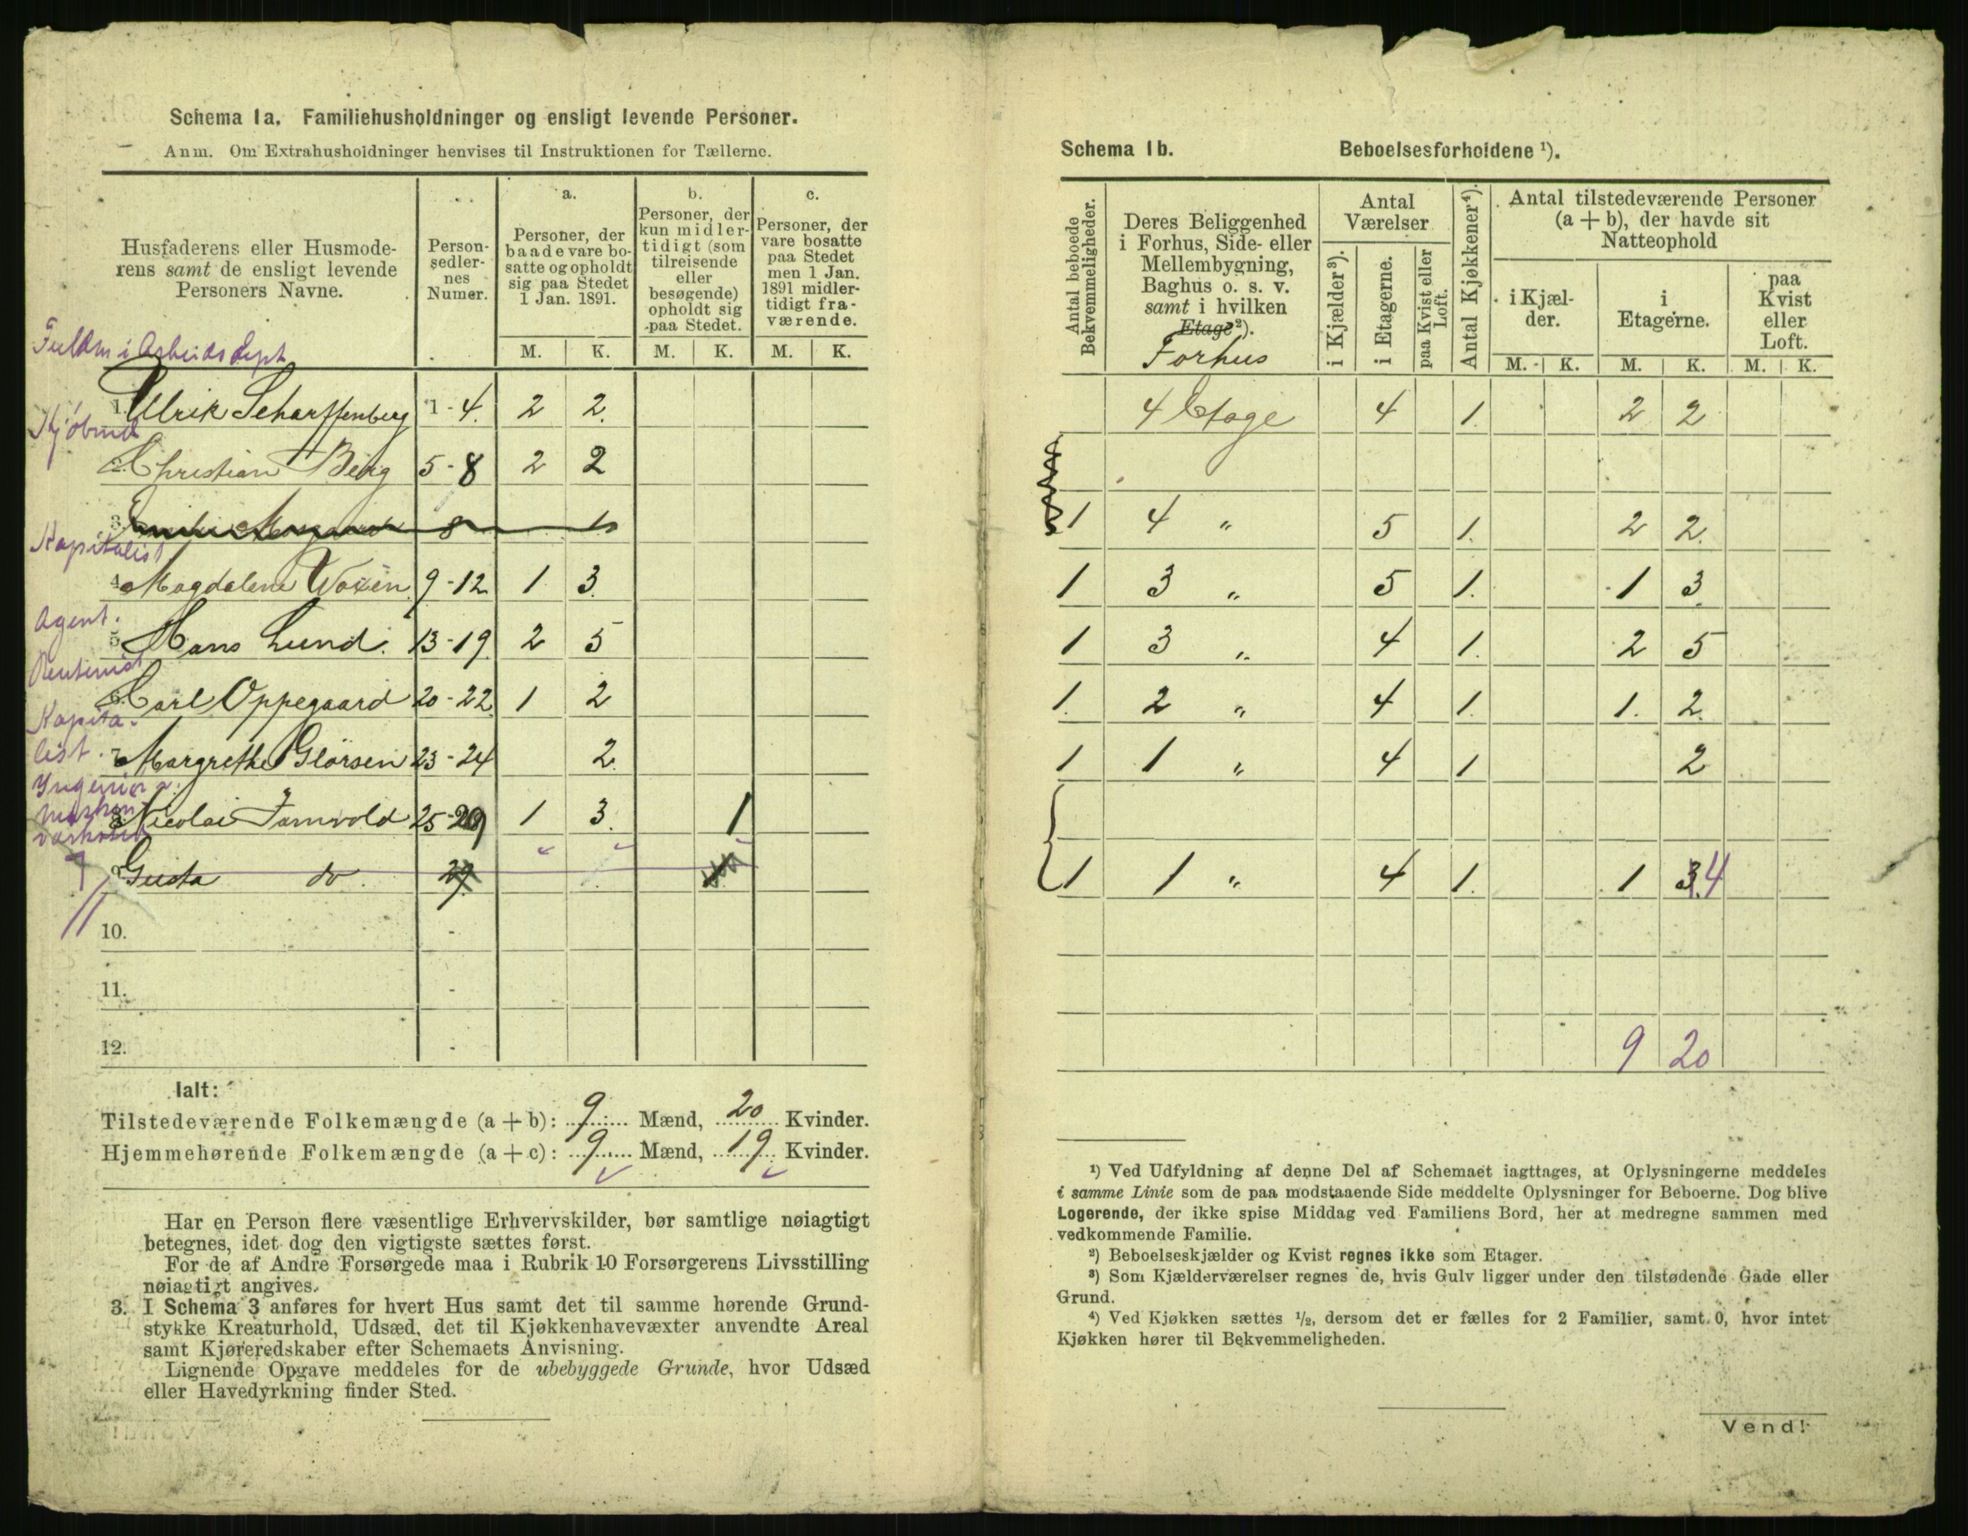 Schema 1a. Familiehusholdninger og ensligt levende Personer.
Anm. Om Extrahusholdninger henvises til Instruktionen for Tællerne.
Husfaderens eller Husmoderens samt de ensligt levende Personers Navne.
Personsedlernes Numer.
a. Personer, der baade vare bosatte og opholdt sig paa Stedet 1 Jan. 1891.
b. Personer, der kun midlertidigt (som tilreisende eller besøgende) opholdt sig paa Stedet.
c. Personer, der vare bosatte paa Stedet men 1 Jan. 1891 midlertidigt fraværende.
M. K. M. K. M. K.
i Arbeids Dept
1. Ulrik Scharffenberg 1-4. 2 2.
Kjøbmd
2. Christian Berg 5-8 2 2
3. 8 1
Kapitalist
4. Magdalene Woxén 9-12 1 3.
Agent.
5. Hans Lund. 13-19. 2 5
Rentenist
6. Carl Oppegaard 20-22. 1 2
Kapitalist.
7. Margrethe Glørsen 23-24 2.
Ingeniør
8. Nicolai Jamvold 25-29 1 3. 1
9. Gusta do. 29 1
10. -
11. -
12. -
Ialt:
Tilstedeværende Folkemængde (a + b): 9 Mænd, 20 Kvinder.
Hjemmehørende Folkemængde (a + c): 9 Mænd, 19 Kvinder.
Har en Person flere væsentlige Erhvervskilder, bør samtlige nøiagtigt
betegnes, idet dog den vigtigste sættes først.
For de af Andre Forsørgede maa i Rubrik 10 Forsørgerens Livsstilling
nøiagtigt angives.
3. I Schema 3 anføres for hvert Hus samt det til samme hørende Grund-
stykke Kreaturhold, Udsæd, det til Kjøkkenhavevæxter anvendte Areal
samt Kjøreredskaber efter Schemaets Anvisning.
Lignende Opgave meddeles for de ubebyggede Grunde, hvor Udsæd
eller Havedyrkning finder Sted.
Schema 1b. Beboelsesforholdene ¹).
Antal beboede Bekvemmeligheder.
Deres Beliggenhed i Forhus, Side- eller Mellembygning, Baghus o. s. v. samt i hvilken Etage²).
Forhus
Antal Værelser
i Kjælder³).
i Etagerne.
paa Kvist eller Loft.
Antal Kjøkkener⁴).
Antal tilstedeværende Personer (a + b), der havde sit Natteophold
i Kjælder.
i Etagerne.
paa Kvist eller Loft.
M. K. M. K. M. K.
4 Etage 4 1. 2 2
1 4 " 5 1. 2 2.
1 3 " 5 1. 1 3.
1 3 " 4 1. 2 5
1. 2 " 4 1. 1. 2.
1 1 " 4 1 2
1 1 " 4 1. 1 3.4
9 20
¹) Ved Udfyldning af denne Del af Schemaet iagttages, at Oplysningerne meddeles
i samme Linie som de paa modstaaende Side meddelte Oplysninger for Beboerne. Dog blive
Logerende, der ikke spise Middag ved Familiens Bord, her at medregne sammen med
vedkommende Familie.
²) Beboelseskjælder og Kvist regnes ikke som Etager.
³) Som Kjælderværelser regnes de, hvis Gulv ligger under den tilstødende Gade eller
Grund.
⁴) Ved Kjøkken sættes ½, dersom det er fælles for 2 Familier, samt 0, hvor intet
Kjøkken hører til Bekvemmeligheden.
Vend!